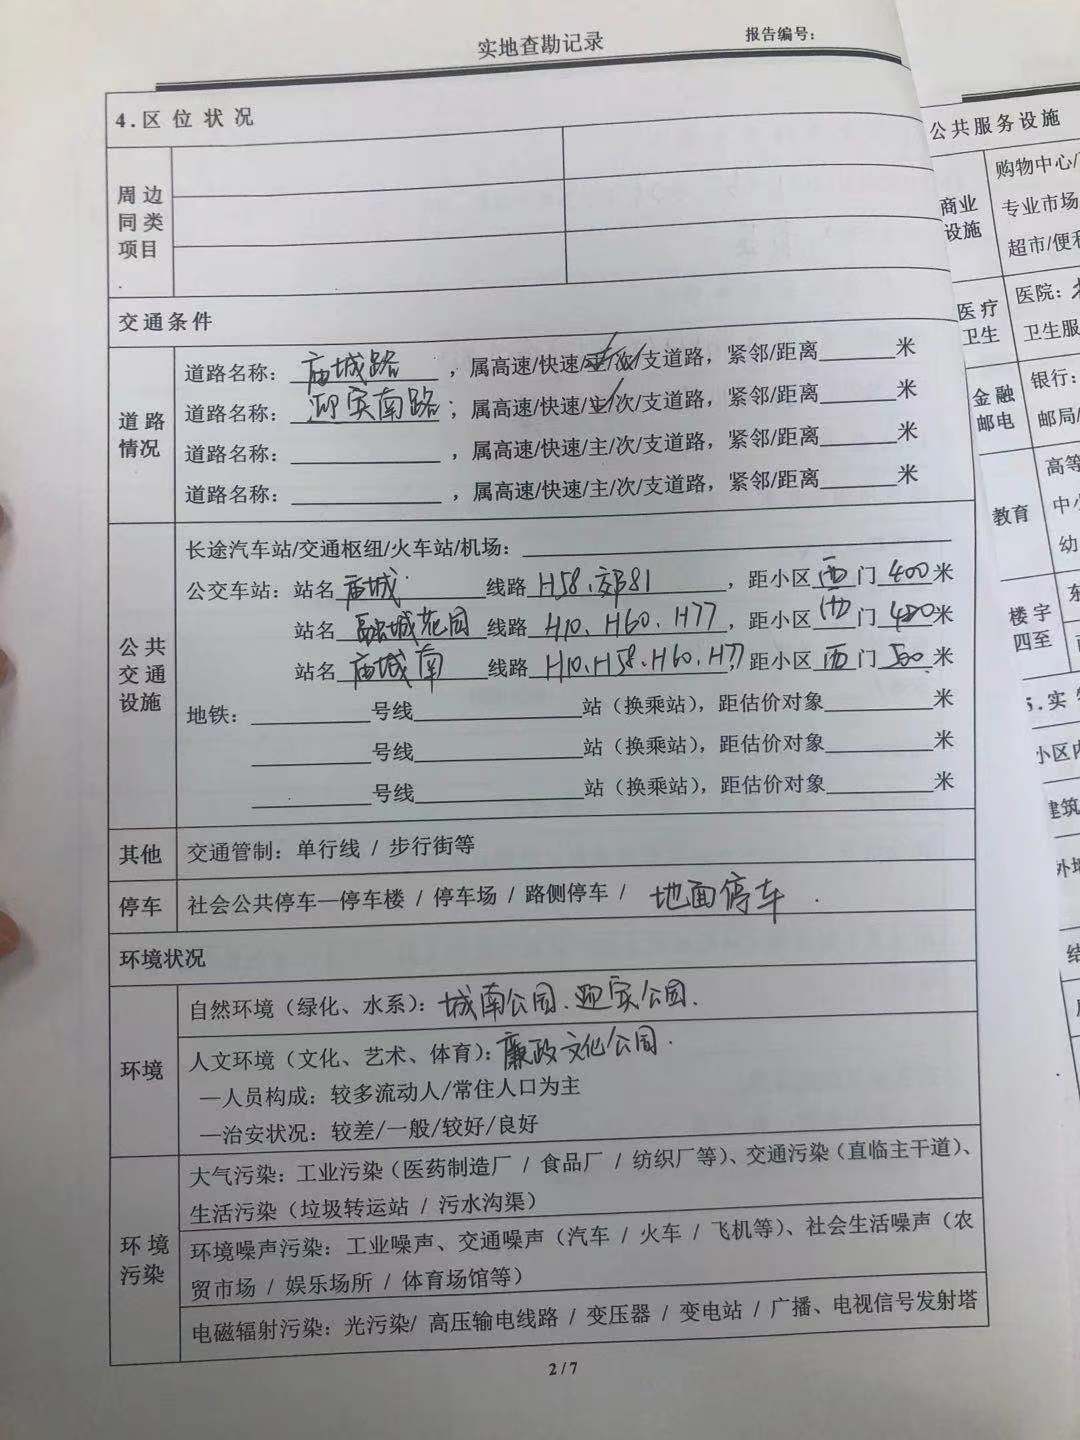 实地查勘记录
报告编号：
4.区位状况
周边同类项目
交通条件
道路情况
道路名称：庙城路，属高速/快速/主/次/支道路，紧邻/距离 米
道路名称：迎宾南路，属高速/快速/主/次/支道路，紧邻/距离 米
道路名称： ，属高速/快速/主/次/支道路，紧邻/距离 米
道路名称： ，属高速/快速/主/次/支道路，紧邻/距离 米
公共交通设施
长途汽车站/交通枢纽/火车站/机场：
公交车站：站名 庙城 线路 H58、郊81 ，距小区 西 门 400 米
站名 融城花园 线路 H10、H60、H77 ，距小区 西 门 480 米
站名 庙城南 线路 H10、H58、H60、H77 距小区 西 门 500 米
地铁： 号线 站（换乘站），距估价对象 米
号线 站（换乘站），距估价对象 米
号线 站（换乘站），距估价对象 米
其他 交通管制：单行线 / 步行街等
停车 社会公共停车—停车楼 / 停车场 / 路侧停车 / 地面停车
环境状况
环境
自然环境（绿化、水系）：城南公园、迎宾公园.
人文环境（文化、艺术、体育）：廉政文化公园.
—人员构成：较多流动人/常住人口为主
—治安状况：较差/一般/较好/良好
环境污染
大气污染：工业污染（医药制造厂 / 食品厂 / 纺织厂等）、交通污染（直临主干道）、
生活污染（垃圾转运站 / 污水沟渠）
环境噪声污染：工业噪声、交通噪声（汽车 / 火车 / 飞机等）、社会生活噪声（农
贸市场 / 娱乐场所 / 体育场馆等）
电磁辐射污染：光污染/ 高压输电线路 / 变压器 / 变电站 / 广播、电视信号发射塔
2/7
公共服务设施
商业设施
购物中心/
专业市场
超市/便利
医疗卫生
医院：
卫生服
金融邮电
银行：
邮局/
教育
高等
中小
幼
楼宇四至
东
5.实
小区内
建筑
外墙
结